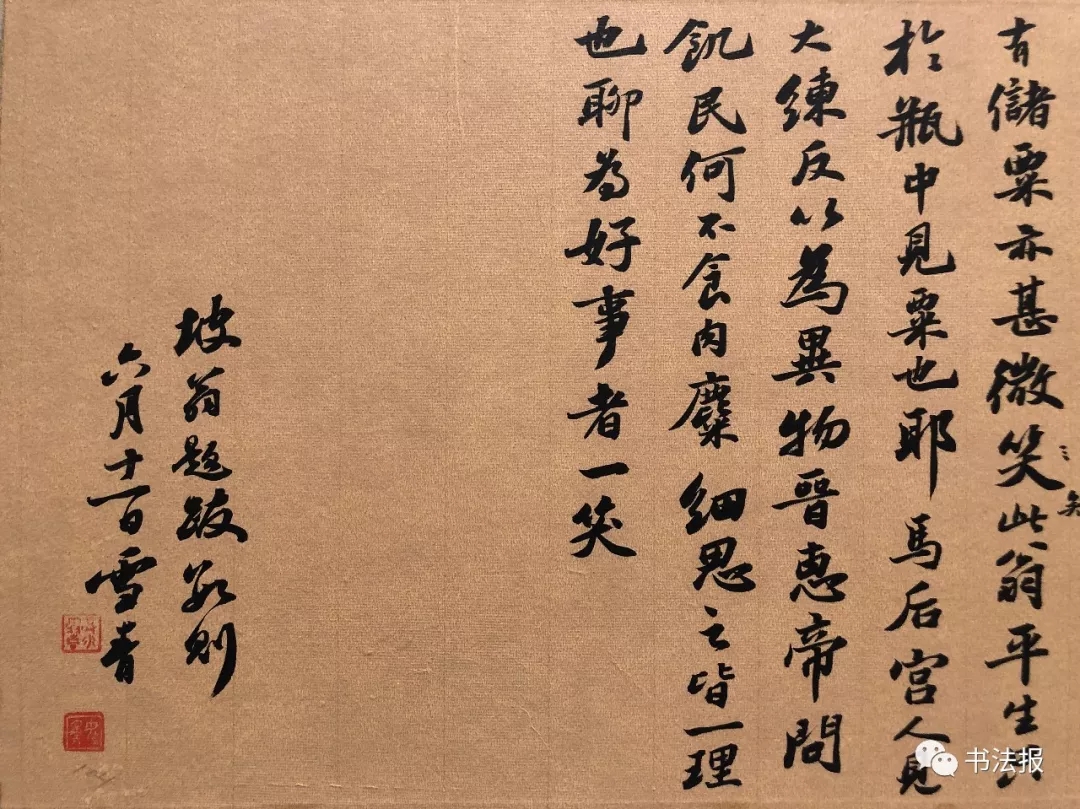 有儲粟亦甚微笑此翁平生只
矣
於瓶中見粟也耶馬后宮人見
大練反以為異物晉惠帝問
飢民何不食肉糜細思之皆一理
也聊為好事者一笑
坡翁題跋數則
六月十一日雪青
书法报